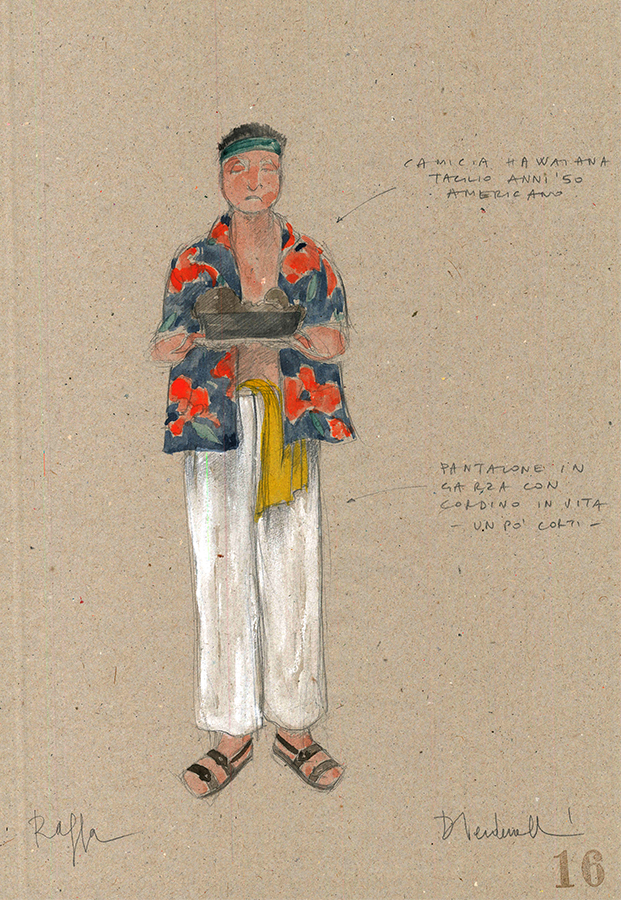 CAMICIA HAWAIANA
TAGLIO ANNI '50
AMERICANO
PANTALONE IN
GARZA CON
CORDINO IN VITA
- UN PO' CORTI -
Raffa
16